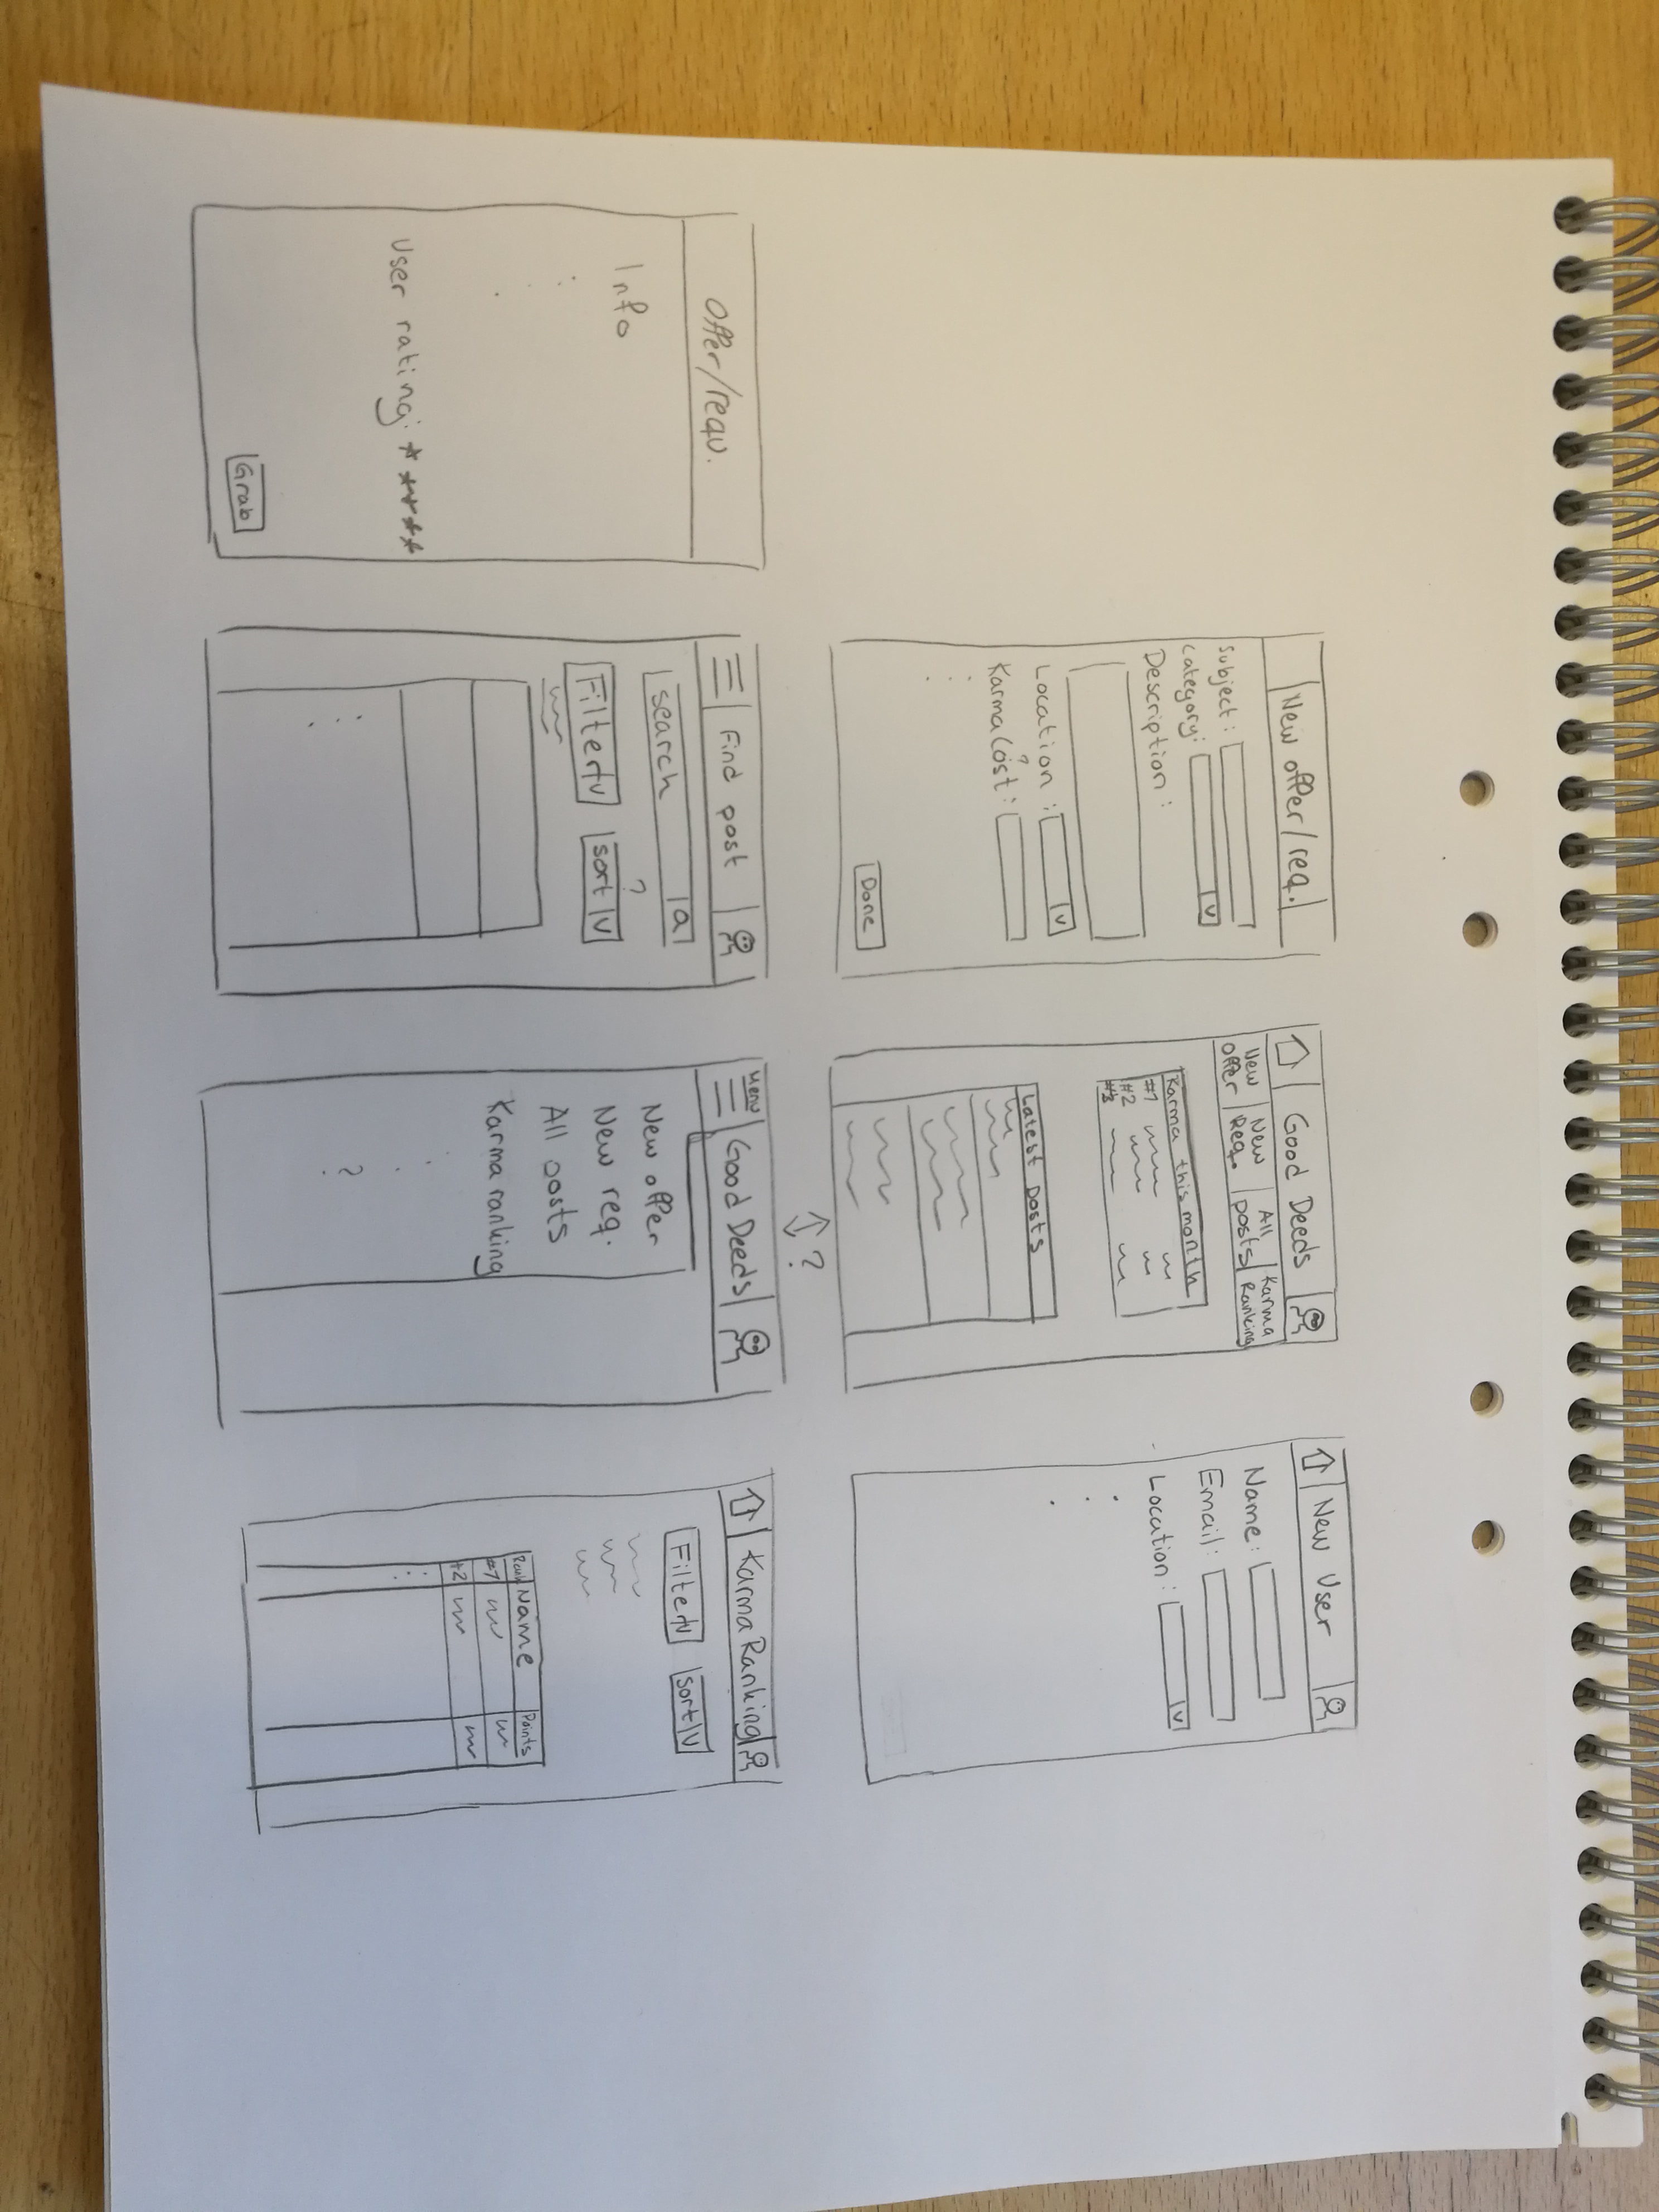 New offer/req.
Subject:
Category: v
Description:
Location: v
?
Karma Cost:
Done
Good Deeds
New offer
New Req.
All posts
Karma Ranking
Karma this month
#1
#2
#3
Latest posts
New User
Name:
Email:
Location: v
↕ ?
Offer/requ.
Info
User rating: * * * * *
Grab
Find post
search
?
Filter v
sort v
Menu
Good Deeds
New offer
New req.
All posts
Karma ranking
?
Karma Ranking
Filter v
sort v
Rank Name Points
#1
#2